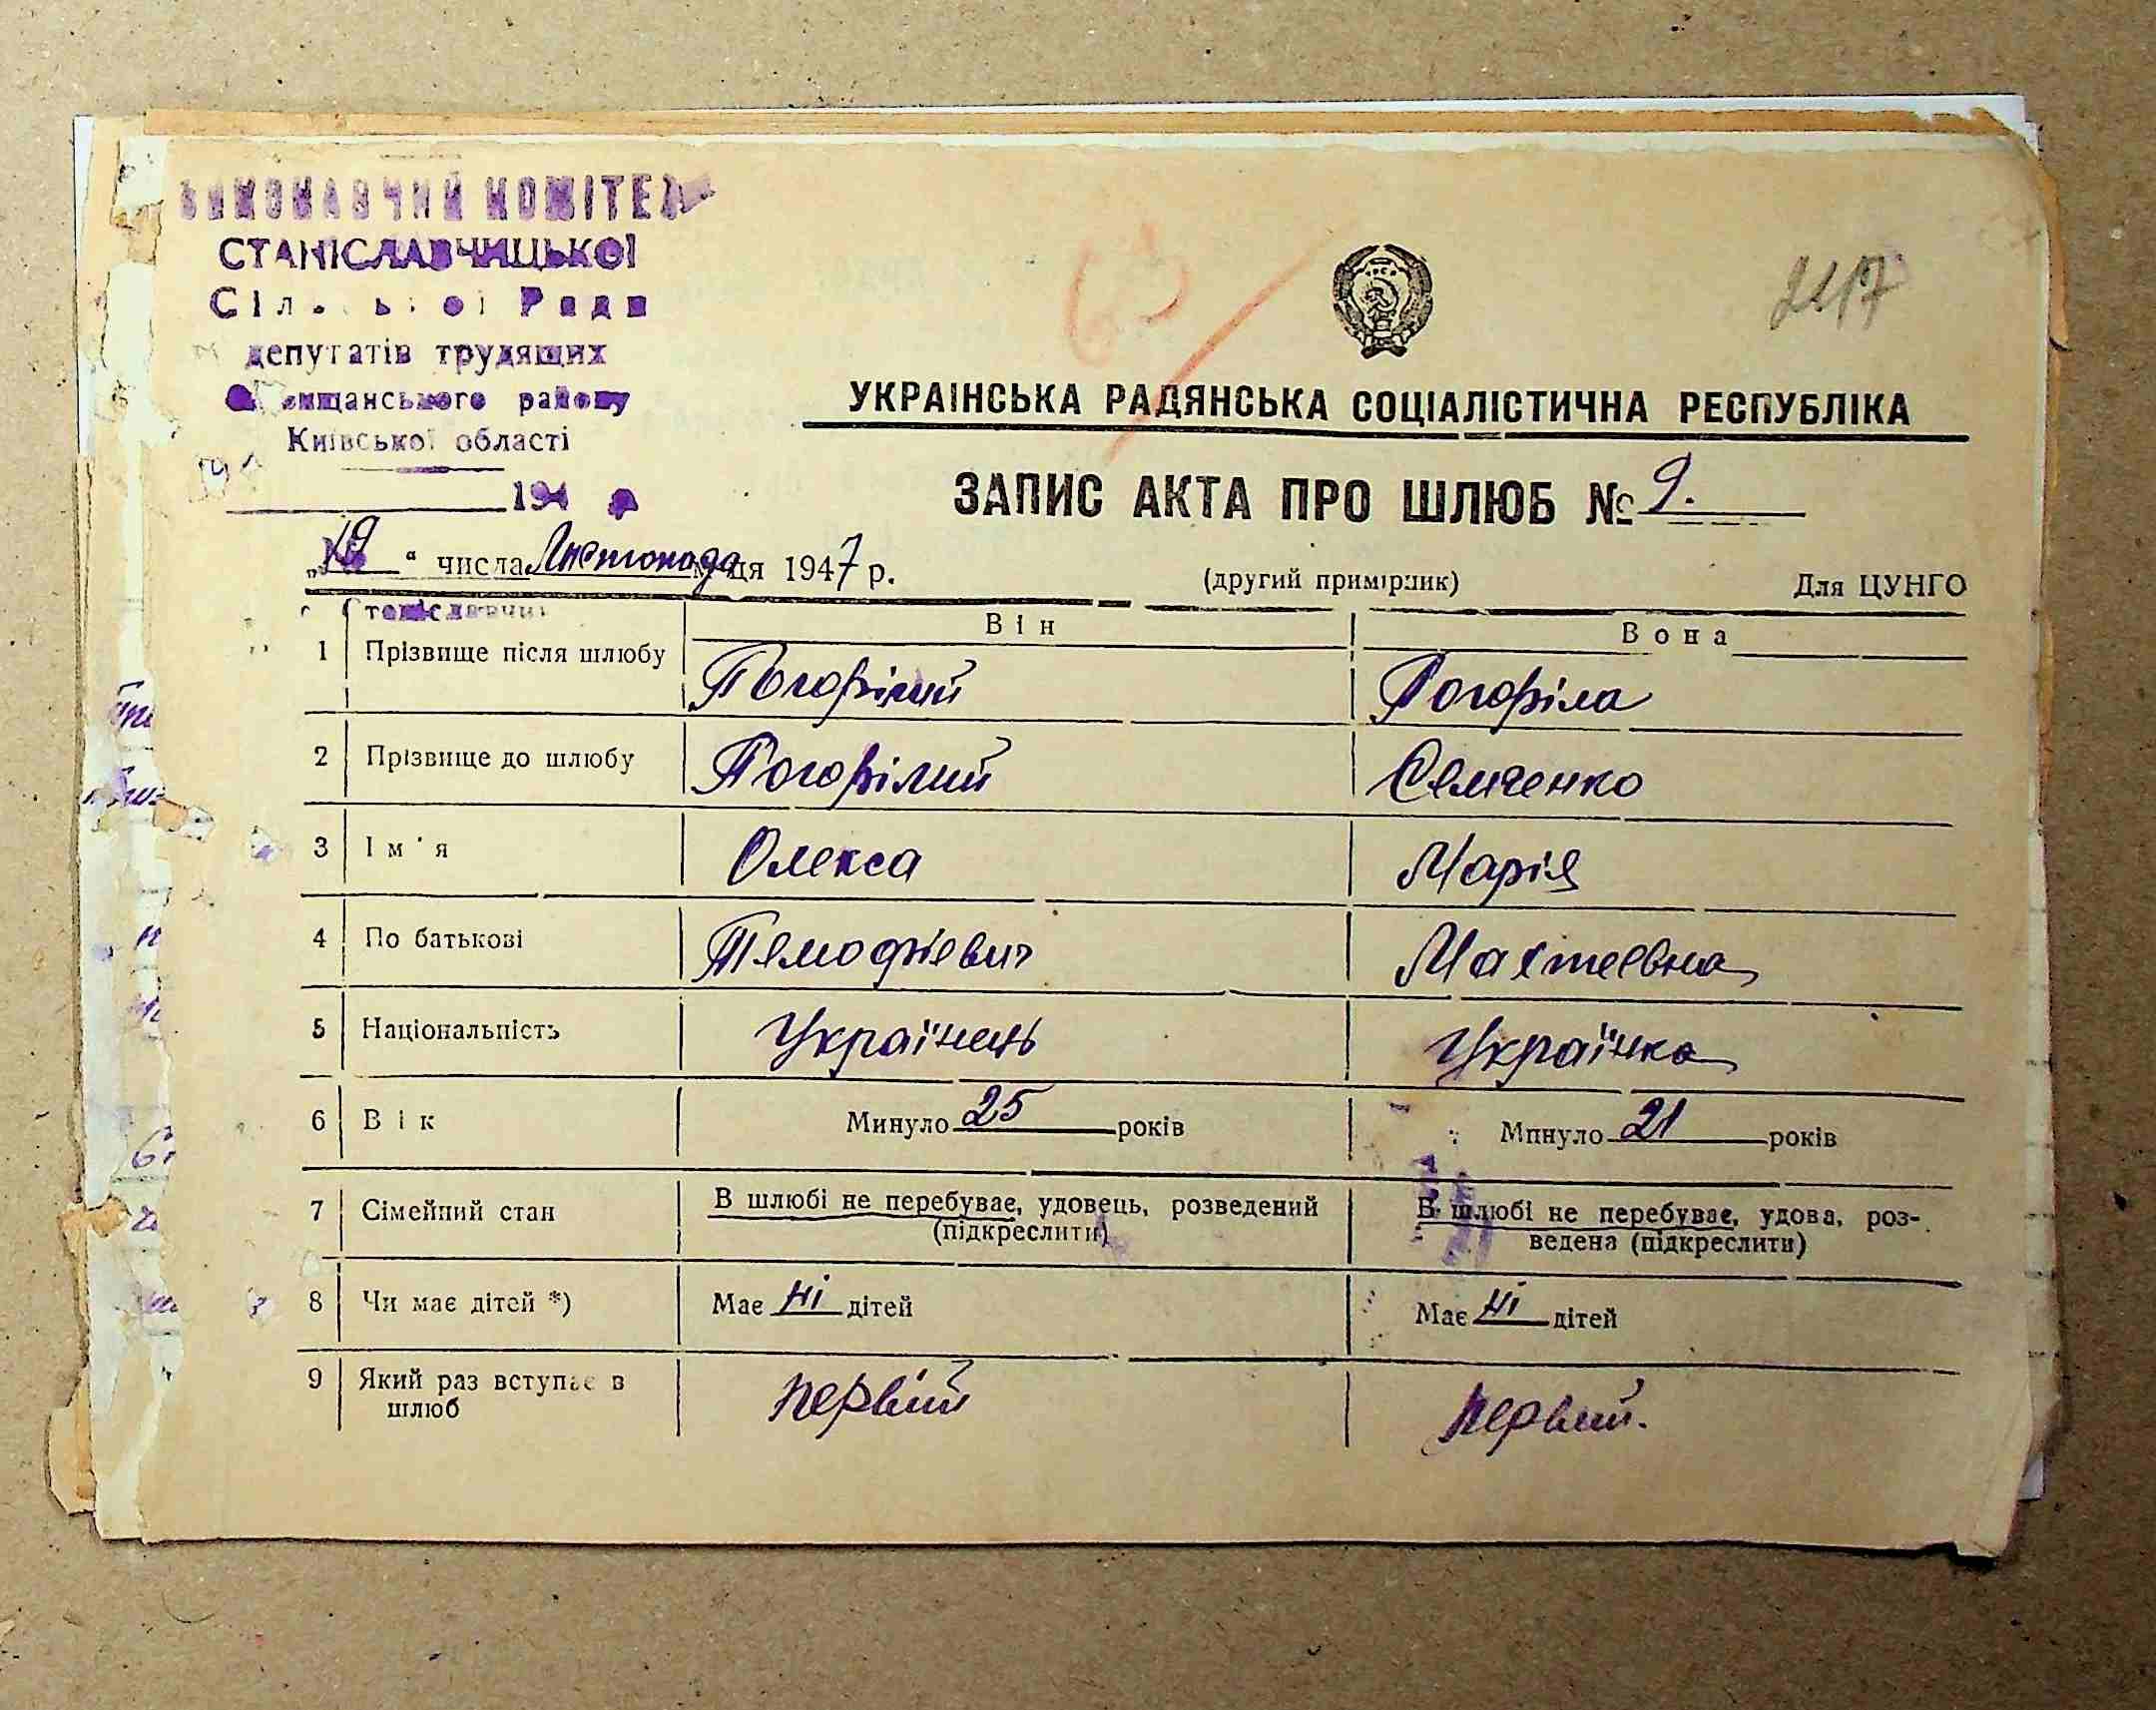 ВИКОНАВЧИЙ КОМІТЕТ
СТАНІСЛАВЧИЦЬКОЇ
Сільської Ради
депутатів трудящих
району
Київської області
194
УКРАЇНСЬКА РАДЯНСЬКА СОЦІАЛІСТИЧНА РЕСПУБЛІКА
ЗАПИС АКТА ПРО ШЛЮБ № 9.
„19“ числа Листопада м-ця 1947 р. (другий примірник) Для ЦУНГО
с Станіславчик
Він Вона
1 Прізвище після шлюбу Погорілий Погоріла
2 Прізвище до шлюбу Погорілий Семченко
3 Ім'я Олекса Марія
4 По батькові Темофієвич
5 Національність Українець Українка
6 Вік Минуло 25 років Минуло 21 років
7 Сімейний стан В шлюбі не перебуває, удовець, розведений В шлюбі не перебуває, удова, роз-
(підкреслити) ведена (підкреслити)
8 Чи має дітей *) Має ні дітей Має ні дітей
9 Який раз вступає в первий первий.
шлюб